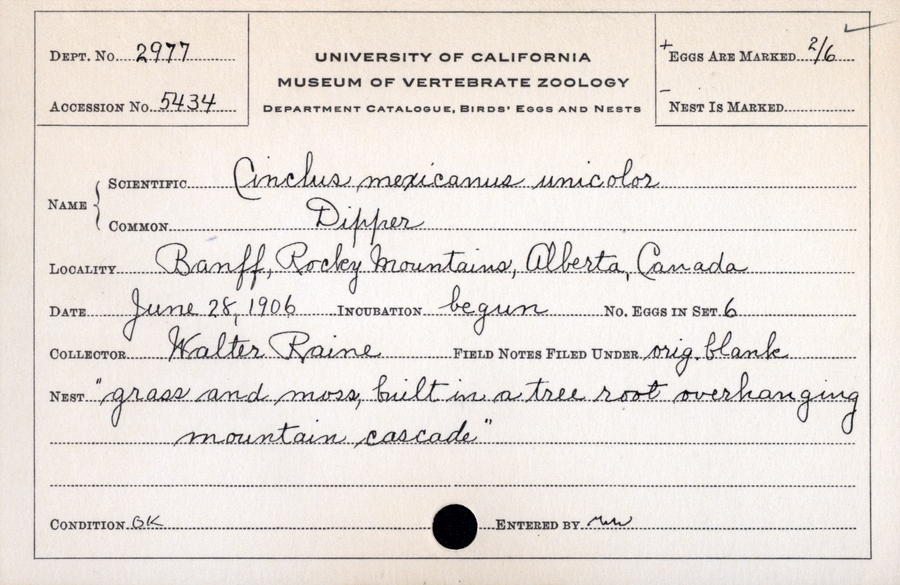 DEPT. NO. 2977
ACCESSION NO. 5434
UNIVERSITY OF CALIFORNIA
MUSEUM OF VERTEBRATE ZOOLOGY
DEPARTMENT CATALOGUE, BIRDS' EGGS AND NESTS
+ EGGS ARE MARKED 2/6
- NEST IS MARKED
NAME
SCIENTIFIC Cinclus mexicanus unicolor
COMMON Dipper
LOCALITY Banff, Rocky Mountains, Alberta, Canada
DATE June 28, 1906 INCUBATION begun NO. EGGS IN SET 6
COLLECTOR Walter Raine FIELD NOTES FILED UNDER orig. blank
NEST "grass and moss, built in a tree root overhanging
mountain cascade"
CONDITION OK ENTERED BY